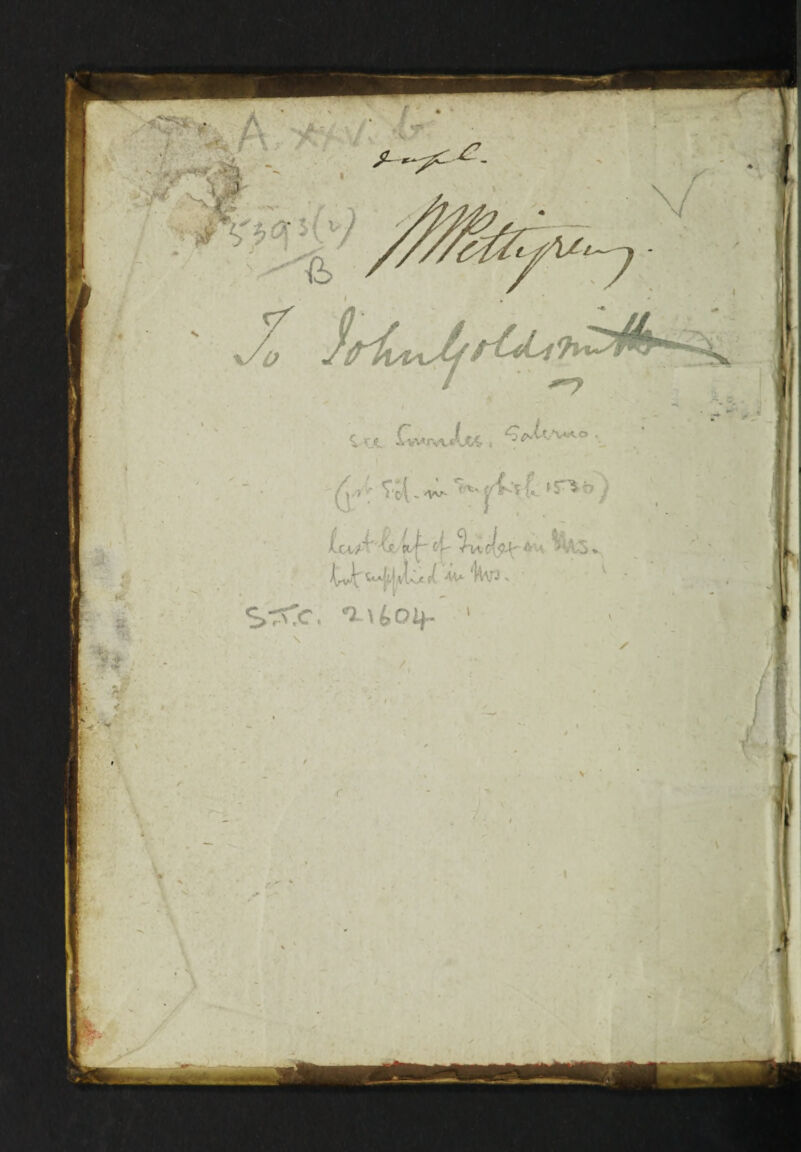 A. xxv. b.
dupl.
5393(2)
B
WPettigrew.
To John Goldsmith
see Salerno.
(1st Ed. in English 1530)
last leaf of Index in Ms.
but supplied in Ms.
S.T.C. 21604